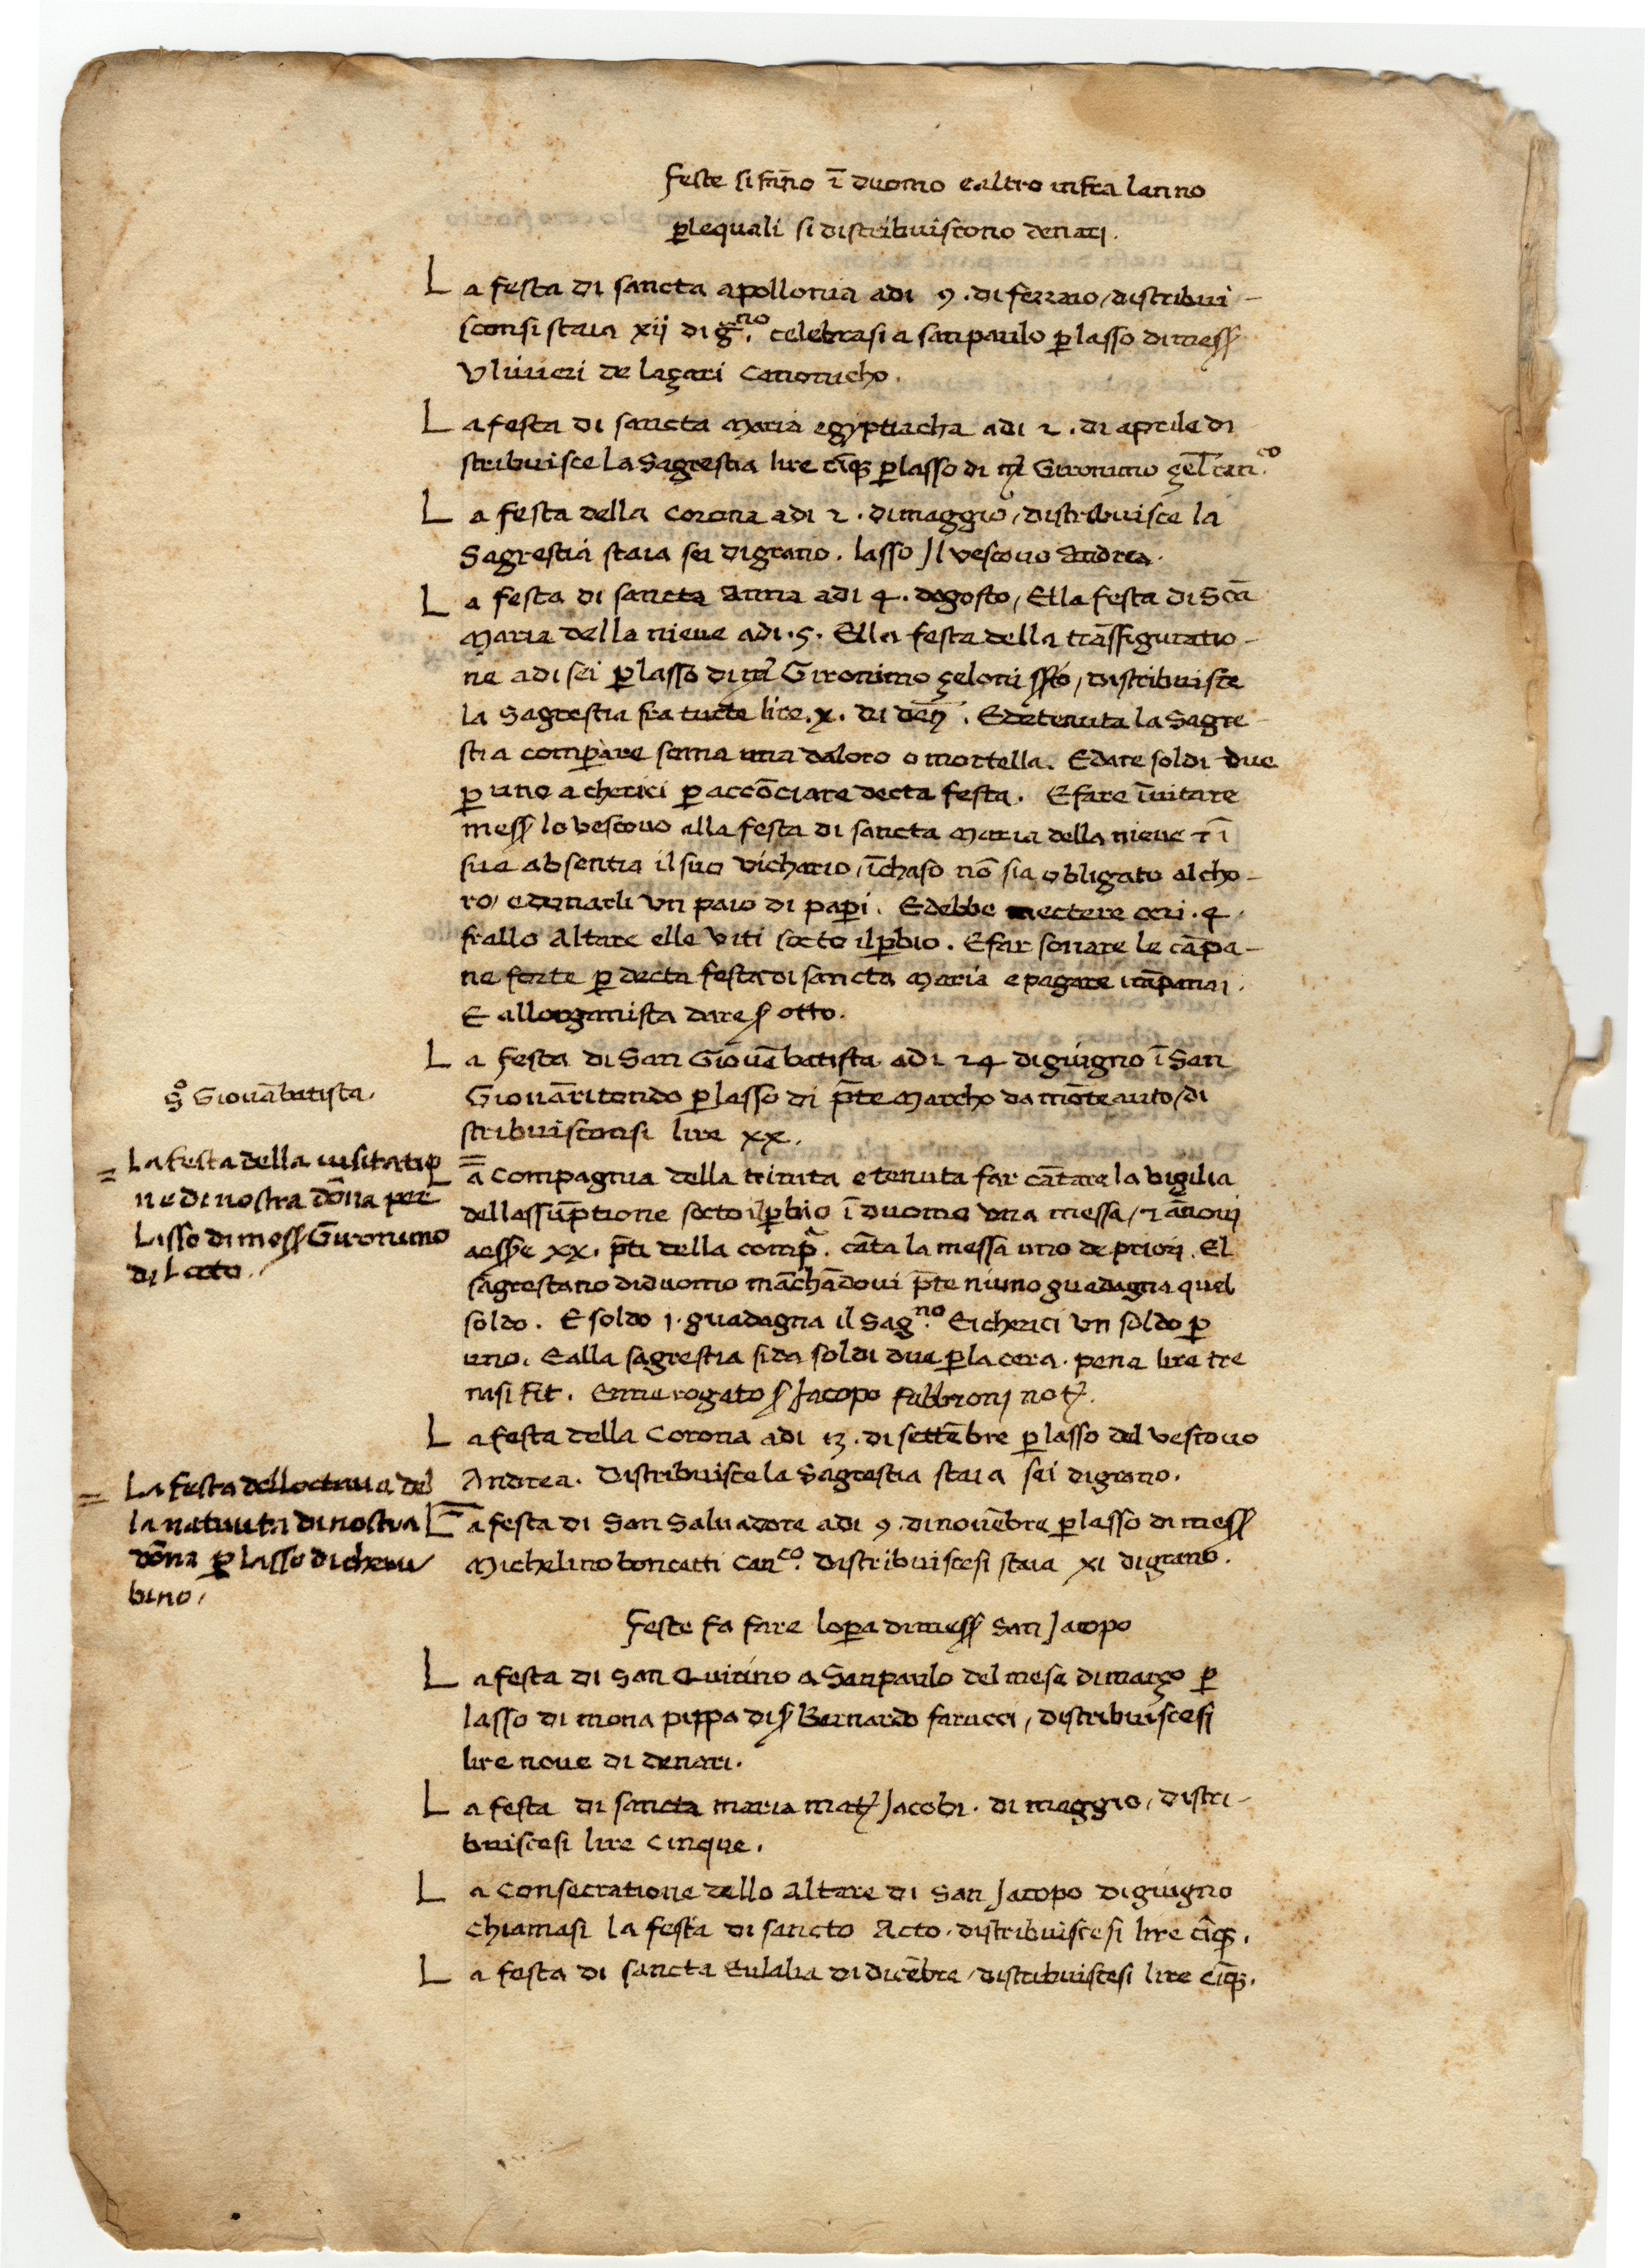 Feste si fāno ī duomo e altro infra lanno
ꝑ lequali si distribuiscono denari.
La festa di sancta apollonia adi 9. di ferraio / distribui-
sconsi staia xij di g.no celebrasi a sanpaulo ꝑ lasso di mess
Ulivieri de laçari Canonicho.
La festa di sancta Maria egyptiacha adi 2. di aprile di
stribuisce la Sagrestia lire cīqꝫ ꝑ lasso di m Gironimo çel can.co
La festa della Corona adi 2. di maggio / distribuisce la
Sagrestia staia sei di grano. lasso Il vescovo Andrea.
La festa di sancta Anna adi 4. dogosto / Ella festa di Scā
Maria della nieve adi .5. Ella festa della trāsfiguratio-
ne adi sei ꝑ lasso di m Gironimo çeloni / distribuisce
la Sagrestia fra tucte lire .x. di den. Ede tenuta la Sagre-
stia comprare soma una daloro o mortella. E dare soldi due
ꝑ uno a cherici ꝑ accōciare decta festa. E fare īvitare
mess lo vescovo alla festa di sancta Maria della nieve ⁊ ī
sua absentia il suo vichario / ī chaso nō sia obligato al cho-
ro / e donarli un paio di paꝑi. E debbe mectere ceri .4.
frallo Altare elle Viti socto il ꝑbio. E far sonare le cāpa-
ne forte ꝑ decta festa di sancta Maria e pagare i cāpanai.
E allorganista dare s otto.
La festa di San Giovābatista adi 24 di giugno ī San
Giovāritondo ꝑ lasso di p̄te Marcho da mōteauto / di
stribuisconsi lire xx.
S.o Giovābatista.
= La festa della visitatio
ne di nostra dōna per
lasso di mess Gironimo
di Lato.
La Compagnia della trinita e tenuta far cātare la vigilia
dellassūptione socto il ꝑbio ī duomo una messa / ⁊ ānovi
aesse xx. p̄ti della comp.a cāta la messa uno de priori. El
sagrestano di duomo māchādovi p̄te niuno guadagna quel
soldo. E soldo 1. guadagna il Sag.no E i cherici un soldo ꝑ
uno. E alla sagrestia si da soldi due ꝑ la cera. pena lire tre
nasi fit. Enne rogato s Jacopo Fabbroni not.
La festa della Corona adi 13. di settēbre ꝑ lasso del vescovo
Andrea. Distribuisce la Sagrestia staia sei di grano.
= La festa dellottava del
la natiuita di nostra
dōna ꝑ lasso di cheru
bino /
La festa di San Salvadore adi 9. di novēbre ꝑ lasso di mess
Michelino boncatti Can.co Distribuiscesi staia xi di grano.
Feste fa fare loꝑa di mess San Jacopo
La festa di San Quirino a Sanpaulo del mese di março ꝑ
lasso di mona pippa di s Bernardo farucci / distribuiscesi
lire nove di denari.
La festa di sancta maria mat Jacobi. di maggio / distri-
buiscesi lire cinque.
La Consecratione dello Altare di San Jacopo di giugno
Chiamasi la festa di sancto Acto. distribuiscesi lire cīqꝫ.
La festa di sancta Eulalia di dicēbre / distribuiscesi lire cīqꝫ.